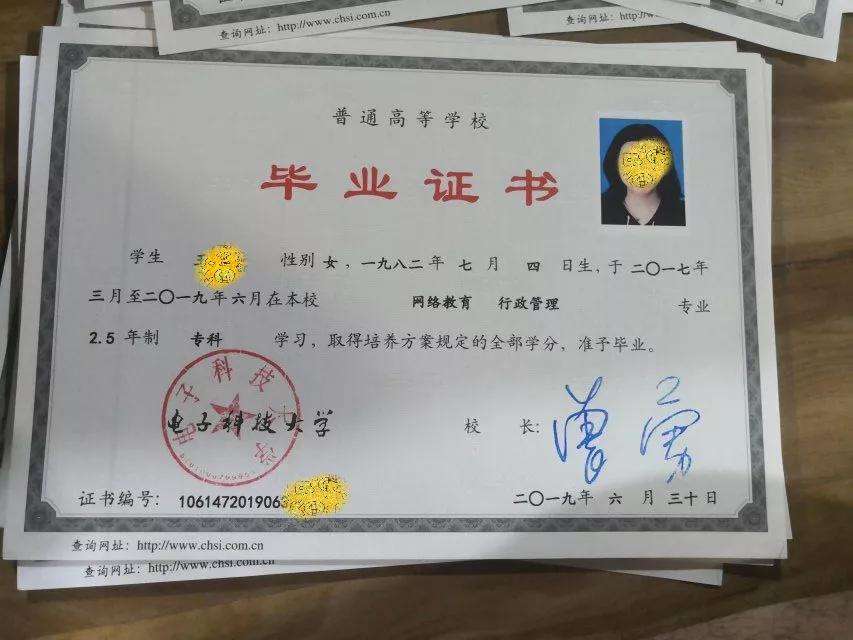 查询网址：http://www.chsi.com.cn
查询网址：http://www
普通高等学校
毕业证书
学生 性别 女，一九八二年 七 月 四 日生，于二〇一七年
三月至二〇一九年 六月在本校 网络教育 行政管理 专业
2.5 年制 专科 学习，取得培养方案规定的全部学分，准予毕业。
电子科技大学
校 长：
证书编号： 1061472019063
二〇一九年 六 月 三十 日
查询网址：http://www.chsi.com.cn
查询网址：http://www.chsi.com.cn